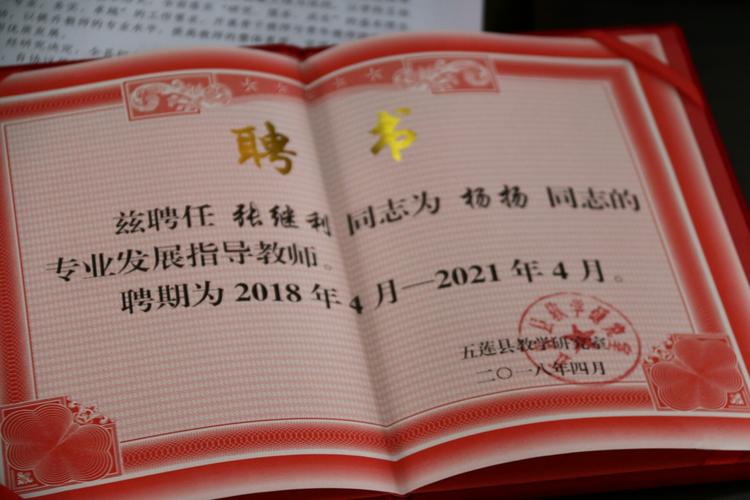 经研究决定,全县
聘书
兹聘任 张继利 同志为 杨扬 同志的
专业发展指导教师。
聘期为 2018 年 4 月—2021 年 4 月。
五莲县教学研究室
二〇一八年四月